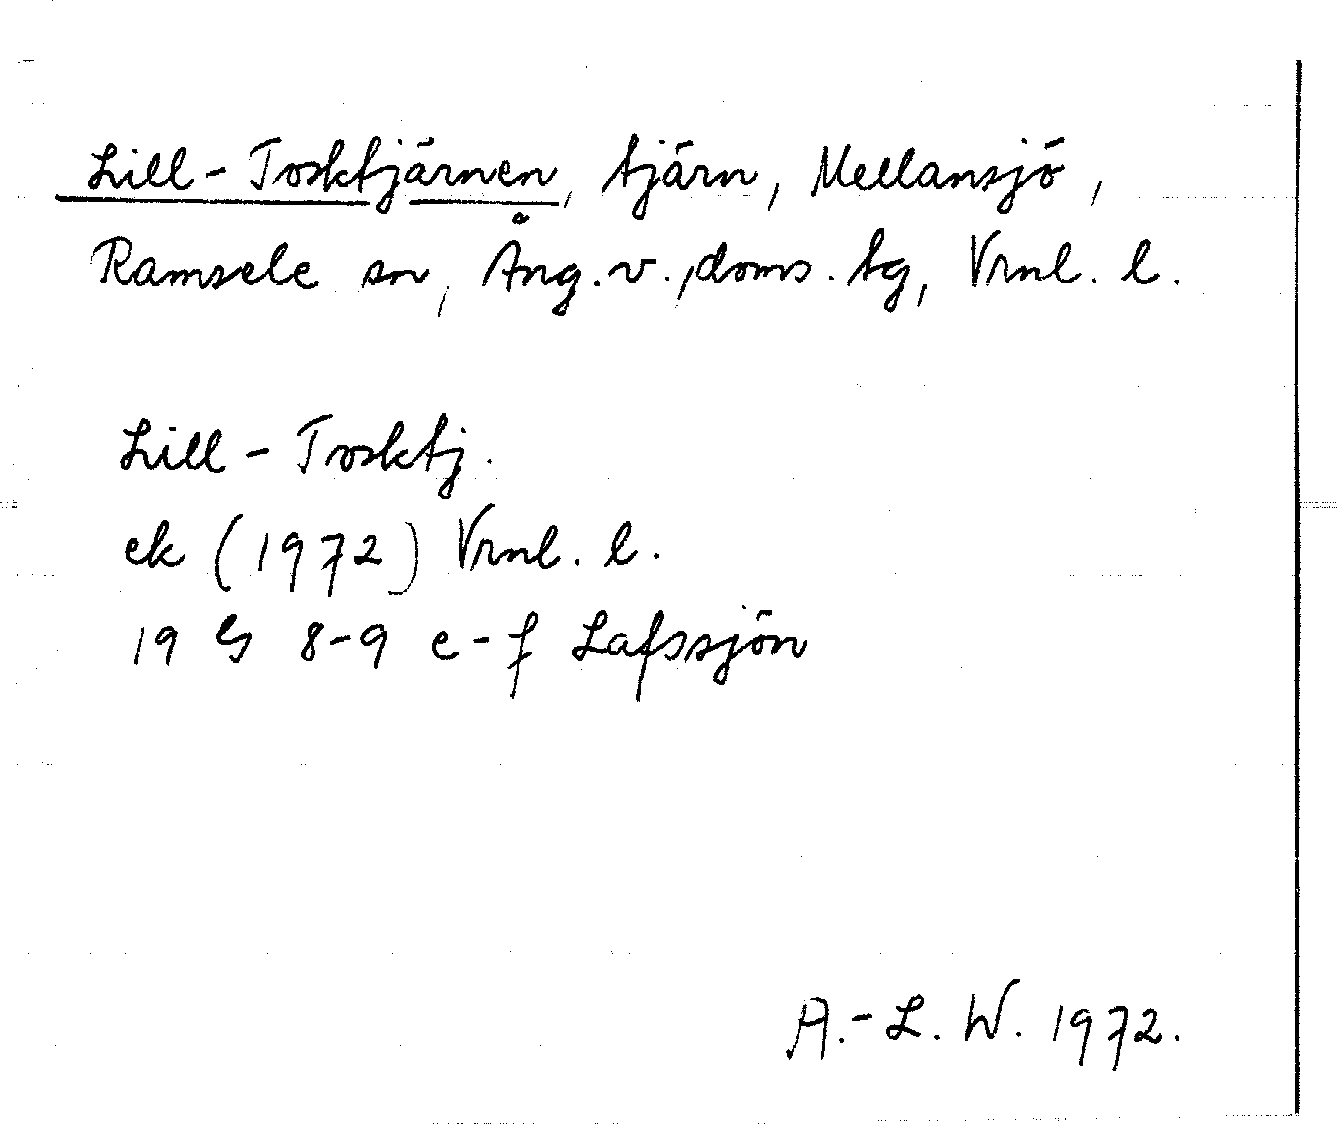 Lill-Torsktjärnen, tjärn, Mellansjö,
Ramsele sn, Ång.v., doms. tg, Vrnl. l.
Lill-Torsktj.
ek (1972) Vrnl. l.
19 G 8-9 e-f Lafssjön
A.-L. W. 1972.